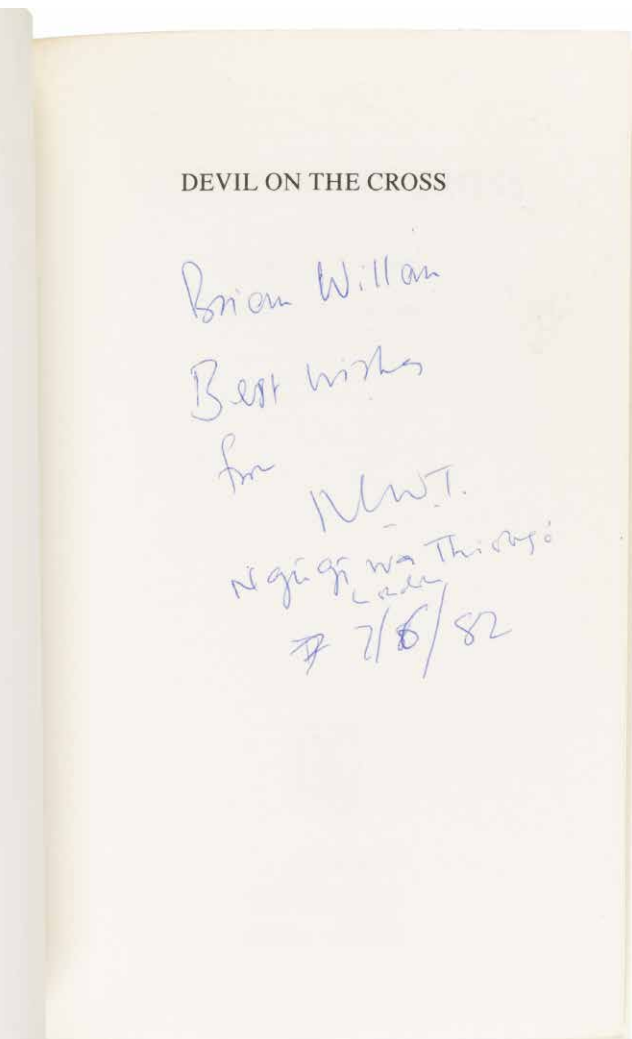 DEVIL ON THE CROSS
Brian Willan
Best wishes
from
N.W.T.
Ngũgĩ wa Thiong'o
London
7/6/82